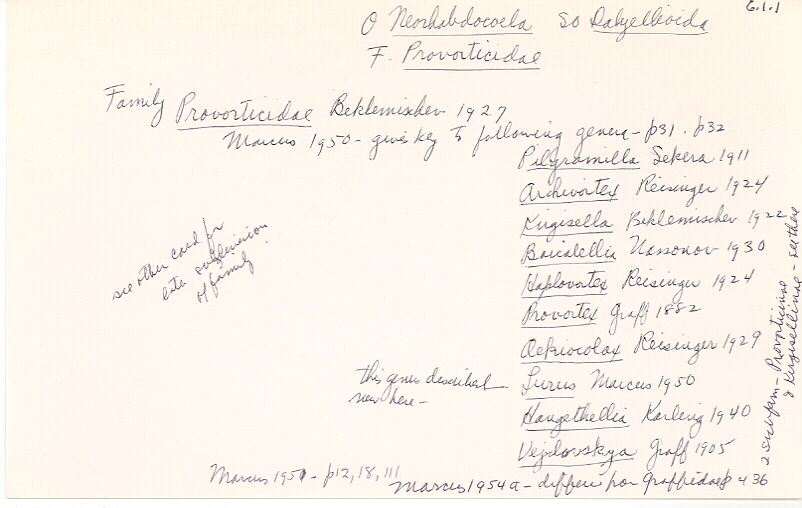 6.1.1
O Neorhabdocoela SO Dalyellioida
F. Provorticidae
Family Provorticidae Beklemischev 1927
Marcus 1950 - gives key to following genera - p31 - p32
Pilgramilla Sekera 1911
Archivortex Reisinger 1924
Kirgisella Beklemischev 1922
Baicalellia Nasonov 1930
Haplovortex Reisinger 1924
Provortex Graff 1882
Oekiocolax Reisinger 1929
this genus described Lurus Marcus 1950
new here -
Hangethellia Karling 1940
Vejdovskya Graff 1905
see other card for
later subdivision
of family.
2 subfam - Provorticinae
& Kirgisellinae - see there
Marcus 1951 - p12, 18, 111
Marcus 1954a - differs from Graffidae p 436